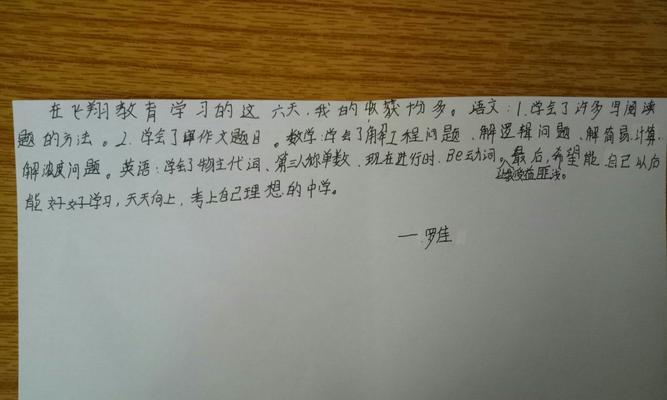 在飞翔教育学习的这六天,我的收获切多。语文:1.学会了许多写阅读
题的方法。2.学会了审作文题目。数学:学会了解工程问题、解逻辑问题、解简易计算、
解浓度问题。英语:学会了物主代词、第三人称单数、现在进行时、Be动词。最后,希望能自己以后
让我受益匪浅。
能好好学习,天天向上,考上自己理想的中学。
—罗佳